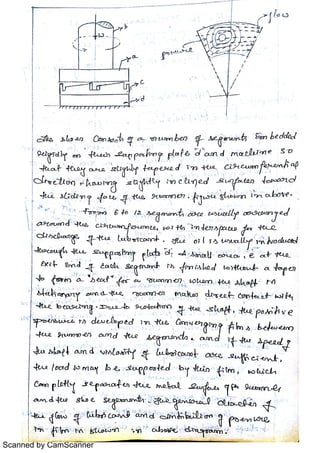 flow
b
w
a
pressure
c
d
The shoes Consist of a number of segments Embedded
Rigidly on their supporting plate 'd' and machine so
that they are slightly tapered in the circumferential
direction having slightly inclined surfaces toward
the sliding face of the runner. figure shown in above.
From 6 to 12 segments are usually arranged
around the circumference, with interspaces for the
discharge of the lubricant. The oil is usually introduced
through the supporting plate d, A small area, e at the
exit end of each segment is finished without a taper
to form a "seat" for a runner, when the shaft is
stationary and the runner makes direct contact with
the bearing. Due to rotation of the shaft, the positive
pressure is developed in the converging films between
the runner and the segments. and if the speed of
the shaft and viscosity of lubricant are sufficient,
the load W may be supported by thin film, which
completely separates the metal surface of the runner
and the shoe segments. The general character of
the flow of lubricant and contribution of pressure
in film is shown in above diagram.
Scanned by CamScanner